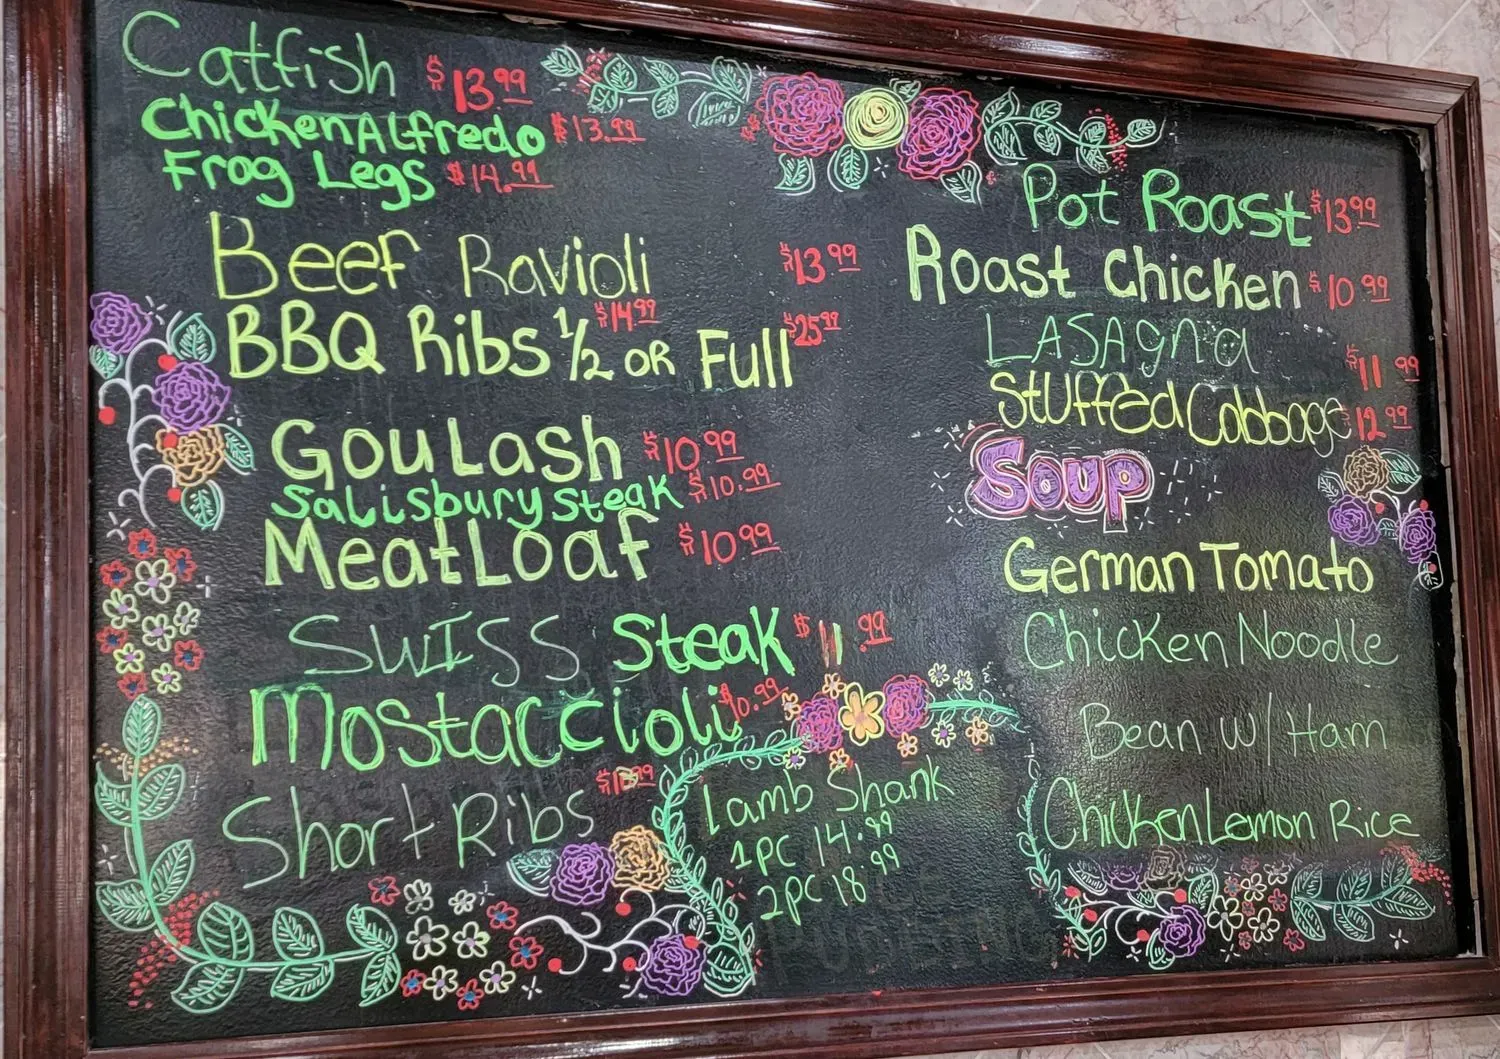 Catfish $13.99
Chicken Alfredo $13.99
Frog Legs $14.99
Beef Ravioli $13.99
BBQ Ribs 1/2 $14.99 OR Full $25.99
Goulash $10.99
Salisbury Steak $10.99
MeatLoaf $10.99
Swiss Steak $11.99
Mostaccioli $10.99
Short Ribs
Lamb Shank
1PC 14.99
2PC 18.99
Pot Roast $13.99
Roast Chicken $10.99
LASAgna $11.99
Stuffed Cabbage $12.99
Soup
German Tomato
Chicken Noodle
Bean w/ Ham
Chicken Lemon Rice